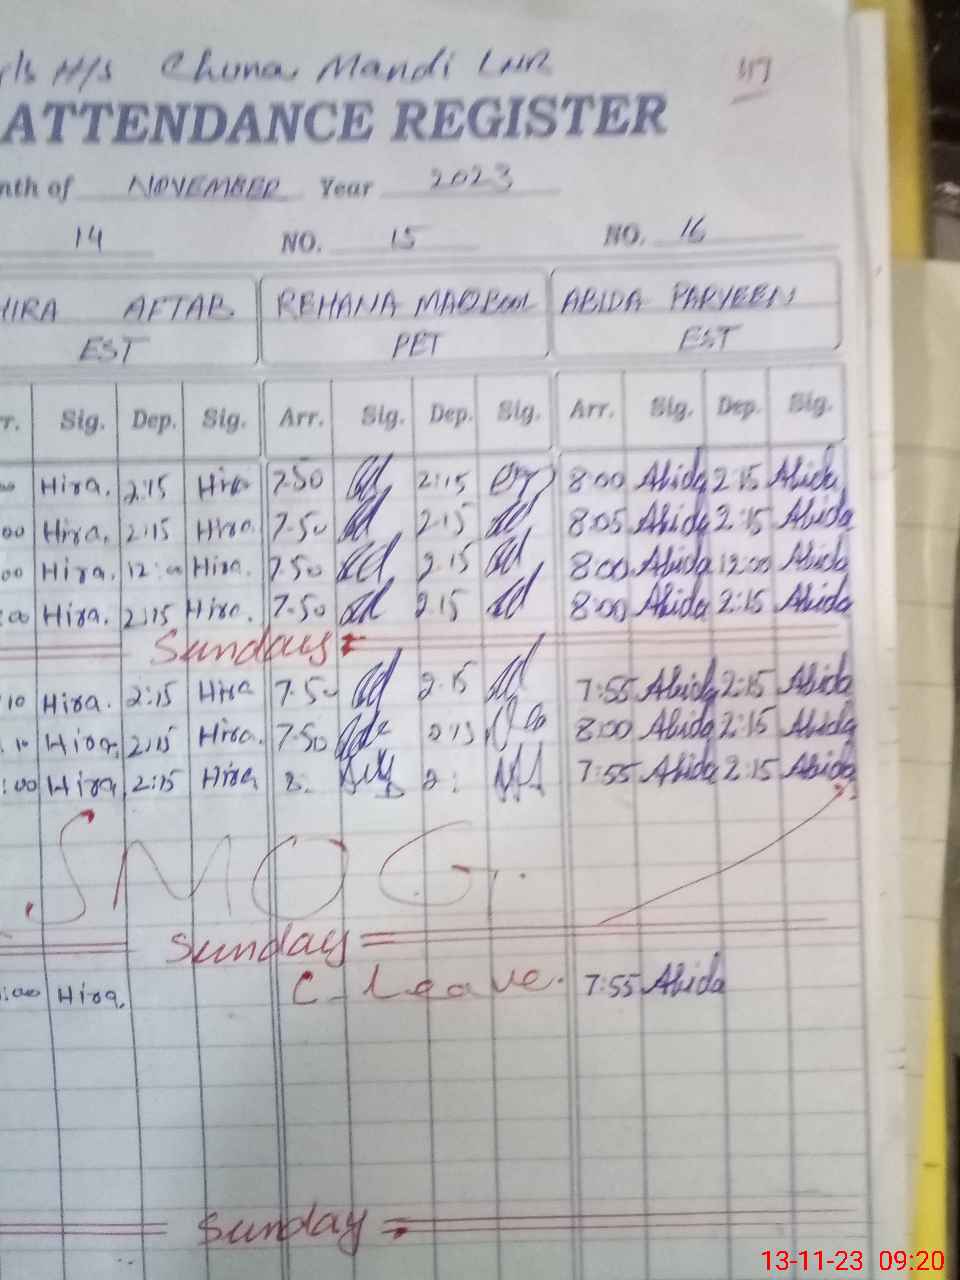 H/S Chuna Mandi LHR
ATTENDANCE REGISTER
nth of NOVEMBER Year 2023
14 NO. 15 NO. 16
HIRA AFTAB REHANA MAQBOOL ABIDA PARVEEN
EST PET EST
r. Sig. Dep. Sig. Arr. Sig. Dep. Sig. Arr. Sig. Dep. Sig.
Hira. 2:15 Hira 7.50 2:15 8:00 Abida 2:15 Abida
00 Hira. 2:15 Hira. 7.50 2.15 8:05 Abida 2:15 Abida
00 Hira. 12:00 Hira. 7.50 2.15 8:00 Abida 12:00 Abida
:00 Hira. 2:15 Hira. 7.50 2.15 8:00 Abida 2:15 Abida
Sunday
10 Hira. 2:15 Hira 7.50 2.15 7:55 Abida 2:15 Abida
10 Hira, 2:15 Hira. 7.50 2:15 8:00 Abida 2:15 Abida
:00 Hira, 2:15 Hira, 8: 2: 7:55 Abida 2:15 Abida
SMOG.
Sunday
:00 Hira. C. Leave. 7:55 Abida
Sunday
13-11-23 09:20